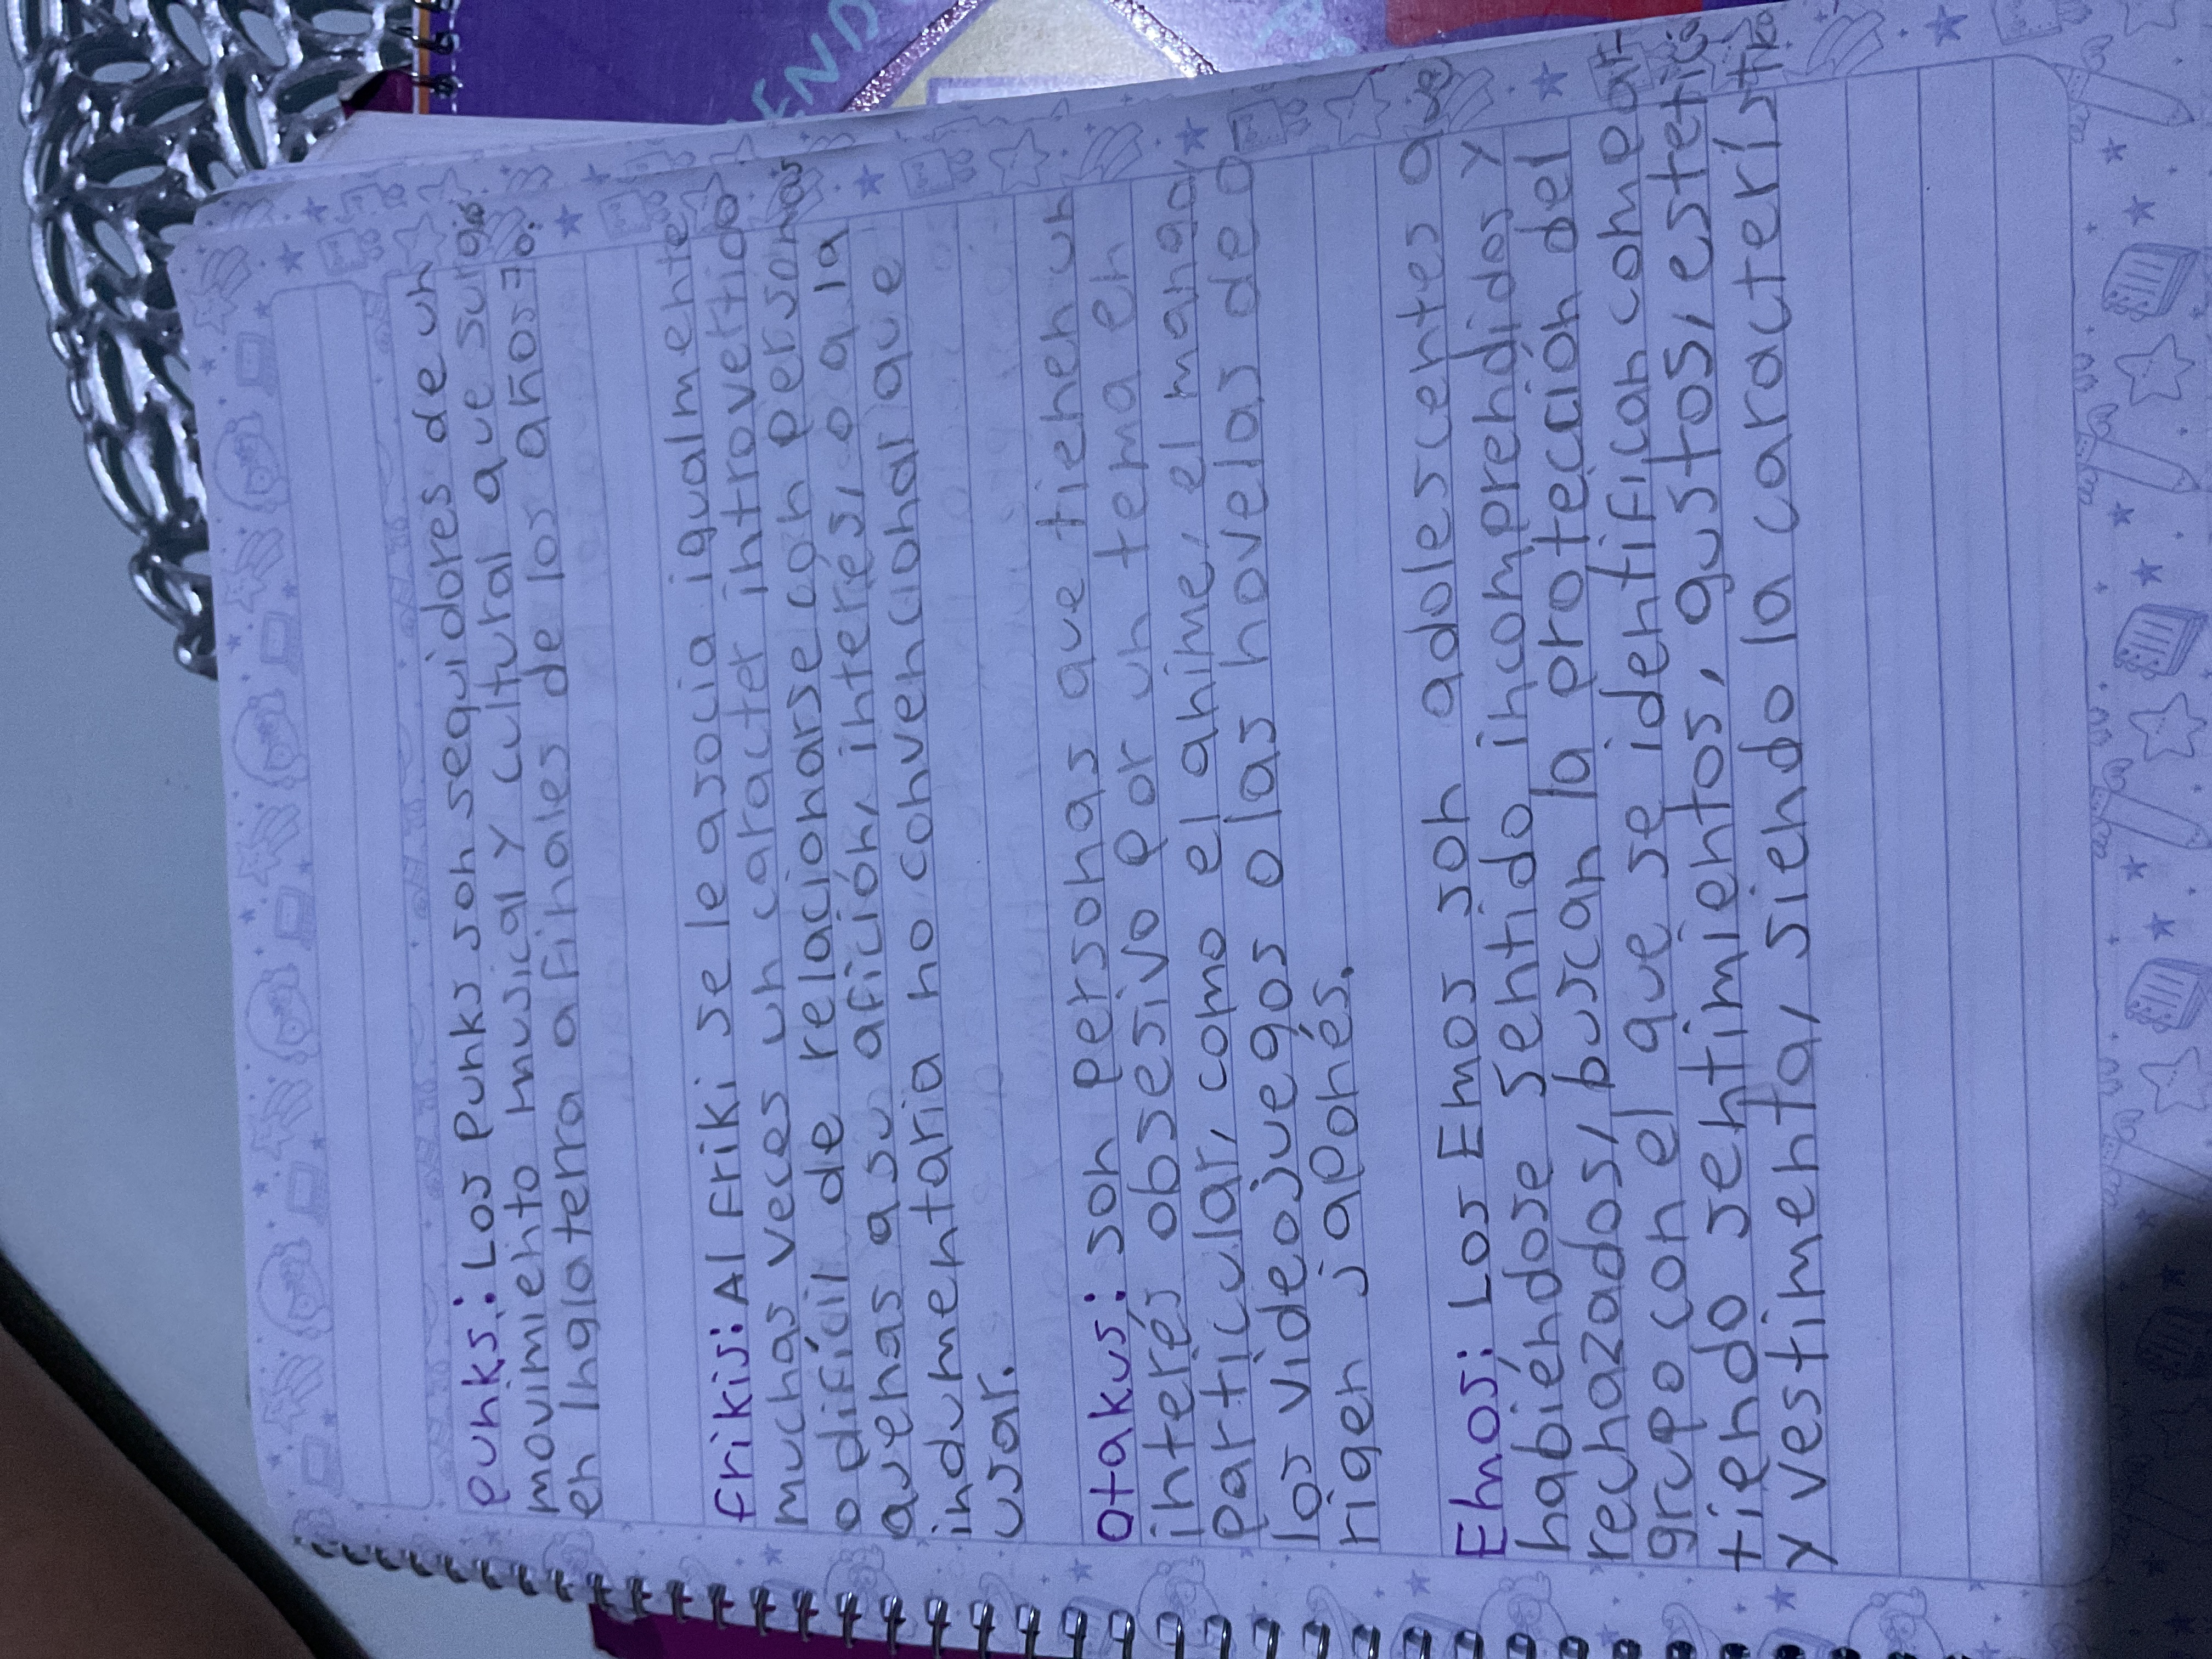 punks: Los punks son seguidores de un
movimiento musical y cultural que surgió
en Inglaterra a finales de los años 70.
frikis: Al friki se le asocia igualmente
muchas veces un caracter introvertido
o difícil de relacionarse con personas
ajenas a su afición, interés, o a la
indumentaria no convencional que
usar.
otakus: son personas que tienen un
interés obsesivo por un tema en
particular, como el anime, el manga,
los videojuegos o las novelas de o
rigen japonés.
Emos: Los Emos son adolescentes que
habiéndose sentido incomprendidos y
rechazados, buscan la protección del
grupo con el que se identifican compar-
tiendo sentimientos, gustos, estética
y vestimenta, siendo la caracterís
ENDO